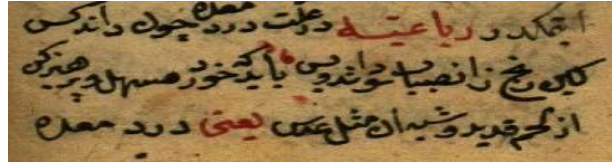 رباعیـــه در علت درد معده چون داند کس
کین رنج ز انصباب خواند و بس باید که خورد مسهل و پرهیز کن
از لحم قدید و شبه آن مثل عدس یعنی درد معده